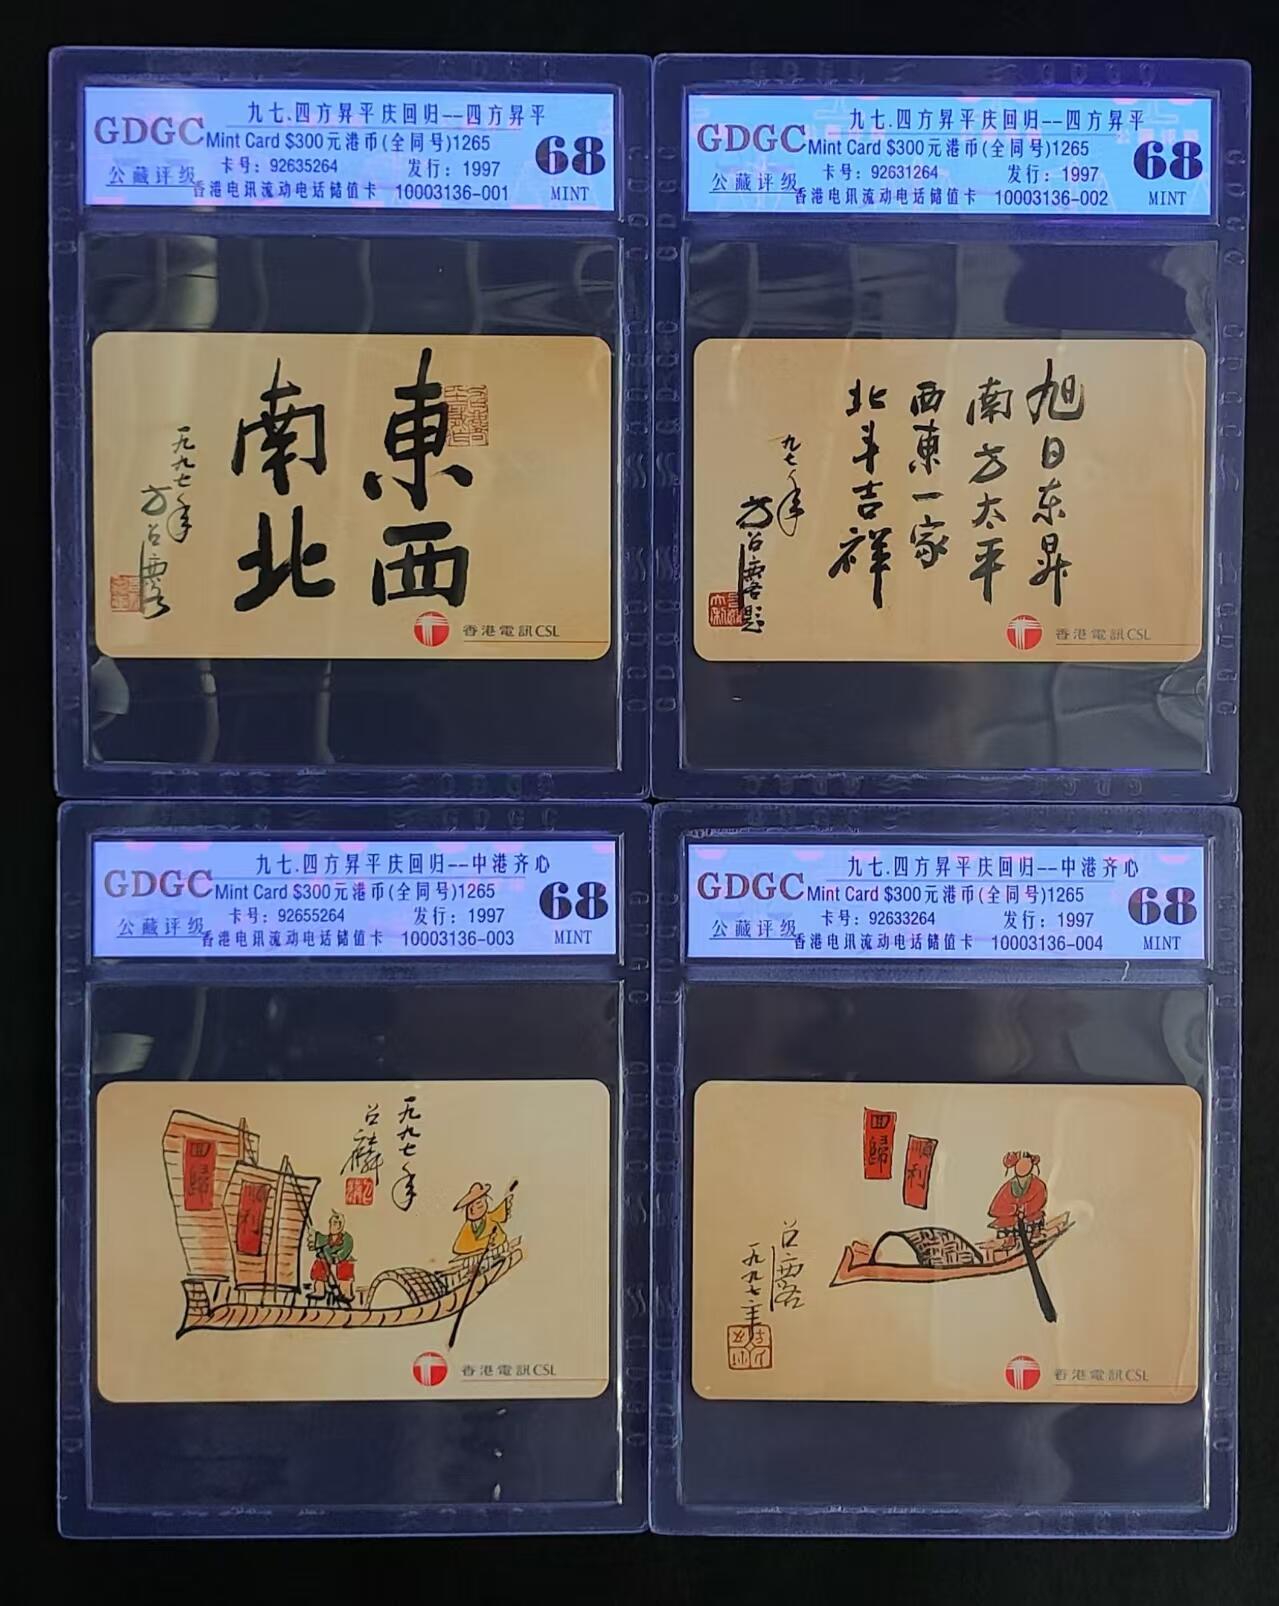 九七.四方昇平庆回归--四方昇平
GDGC
Mint Card $300元港币(全同号)1265
68
公藏评级
卡号：92635264
发行：1997
香港电讯流动电话储值卡 10003136-001
MINT
東西
南北
一九九七年
方召麐
香港電訊CSL
九七.四方昇平庆回归--四方昇平
GDGC
Mint Card $300元港币(全同号)1265
68
公藏评级
卡号：92631264
发行：1997
香港电讯流动电话储值卡 10003136-002
MINT
旭日东昇
南方太平
西東一家
北斗吉祥
九七年
方召麐題
香港電訊CSL
九七.四方昇平庆回归--中港齐心
GDGC
Mint Card $300元港币(全同号)1265
68
公藏评级
卡号：92655264
发行：1997
香港电讯流动电话储值卡 10003136-003
MINT
回歸
順利
一九九七年
召麐
香港電訊CSL
九七.四方昇平庆回归--中港齐心
GDGC
Mint Card $300元港币(全同号)1265
68
公藏评级
卡号：92633264
发行：1997
香港电讯流动电话储值卡 10003136-004
MINT
回歸
順利
召麐
一九九七年
香港電訊CSL